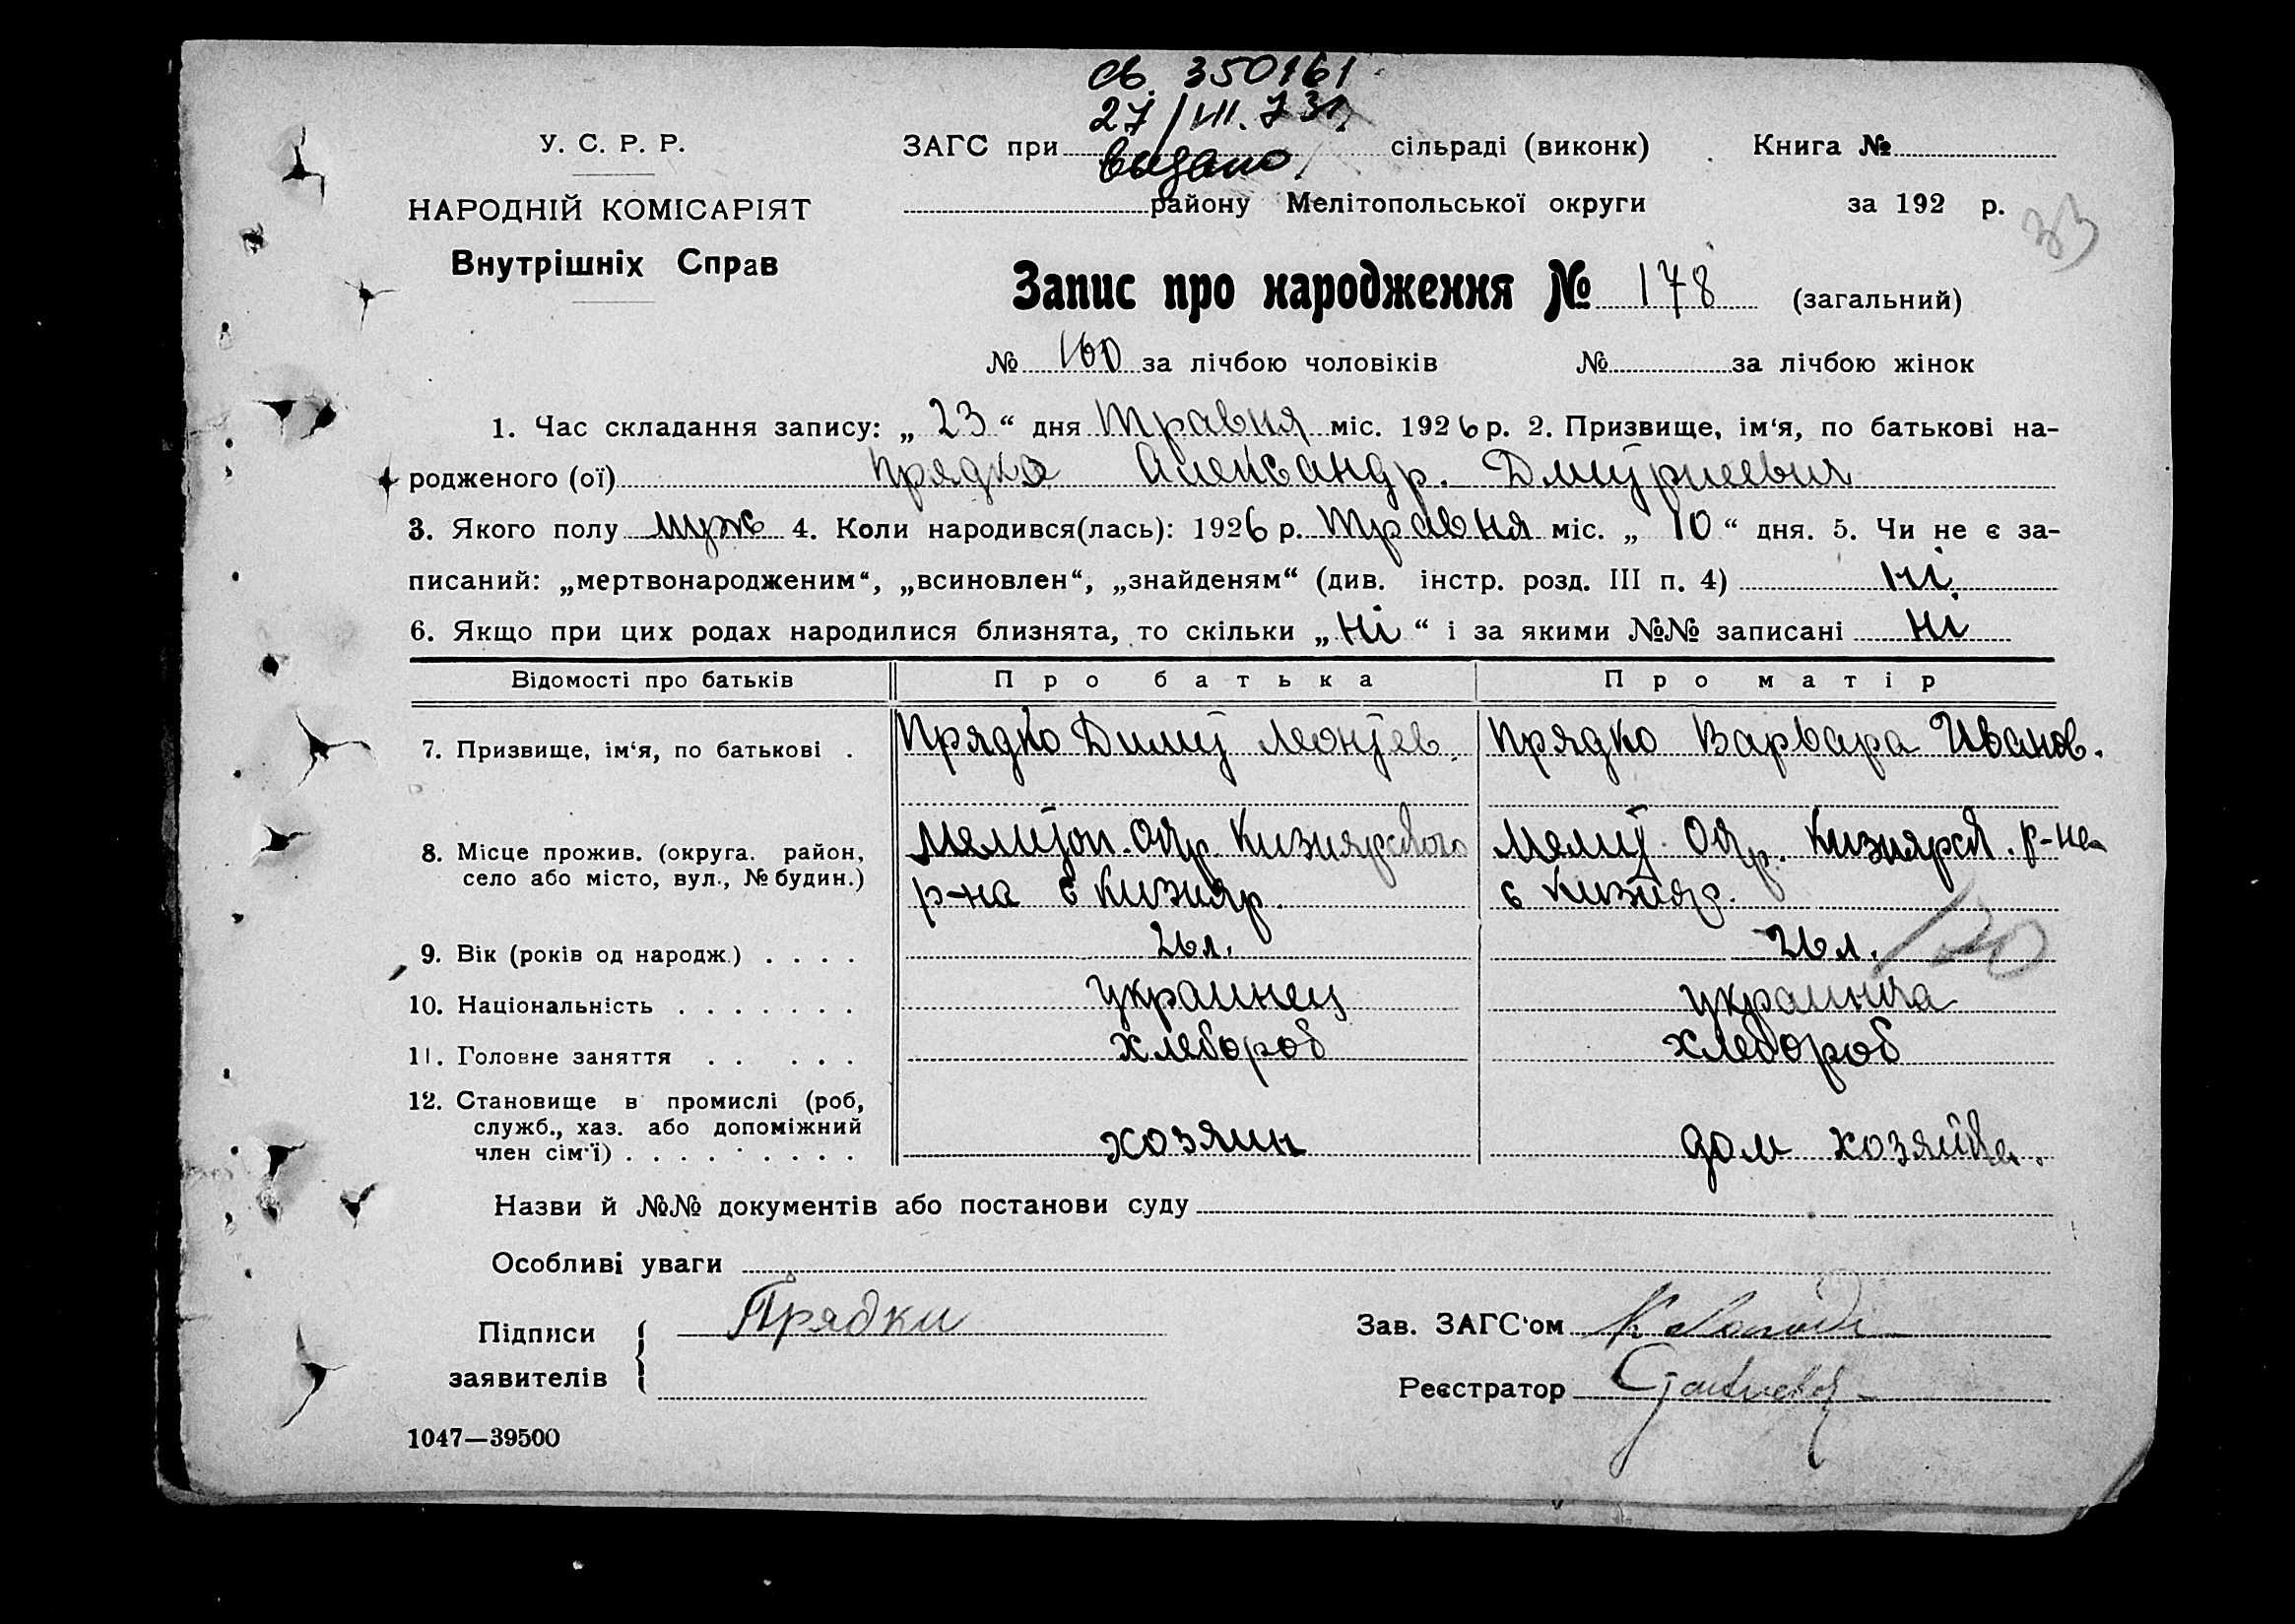 св. 350161
27/VII.73г.
выдано
У. С. Р. Р.
ЗАГС при сільраді (виконк) Книга №
НАРОДНІЙ КОМІСАРІЯТ
району Мелітопольської округи за 192 р.
33
Внутрішніх Справ
Запис про народження № 178 (загальний)
№ 100 за лічбою чоловіків № за лічбою жінок
1. Час складання запису: „ 23 “ дня Травня міс. 1926 р. 2. Призвище, ім‘я, по батькові на-
родженого (ої) Прядко Александр. Дмитриевич
3. Якого полу муж 4. Коли народився(лась): 1926 р. Травня міс. „ 10 “ дня. 5. Чи не є за-
писаний: „мертвонародженим“, „всиновлен“, „знайденям“ (див. інстр. розд. III п. 4) ні
6. Якщо при цих родах народилися близнята, то скільки „ Ні “ і за якими №№ записані Ні
Відомості про батьків Про батька Про матір
7. Призвище, ім‘я, по батькові . Прядко Дмит Леонтьев. Прядко Варвара Иванов.
8. Місце прожив. (округа. район, Мелитоп. Окр. Кизиярского Мелит. Окр. Кизиярск. р-на
село або місто, вул., № будин.) р-на с Кизияр. с Кизияр.
9. Вік (років од народж.) . . . . 26 л. 26 л.
120
10. Національність . . . . . . . украинец украинка
11. Головне заняття . . . . . хлебороб хлебороб
12. Становище в промислі (роб,
служб., хаз. або допоміжний
член сім‘ї) . . . . . . . . . хозяин дом хозяйка.
Назви й №№ документів або постанови суду
Особливі уваги
Підписи Прядки Зав. ЗАГС‘ом
заявителів Реєстратор
1047—39500